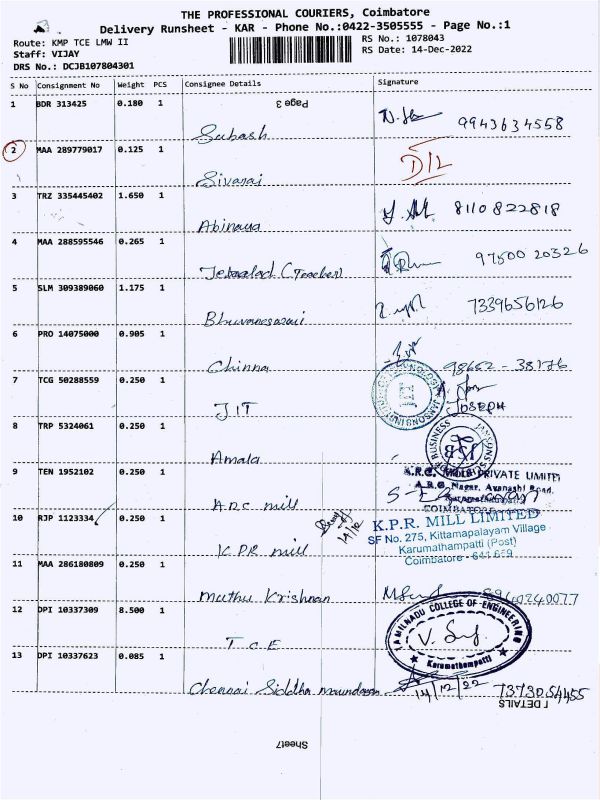 THE PROFESSIONAL COURIERS, Coimbatore
Delivery Runsheet - KAR - Phone No.:0422-3505555 - Page No.:1
Route: KMP TCE LMW II
Staff: VIJAY
DRS No.: DCJB107804301
RS No.: 1078043
RS Date: 14-Dec-2022
S No Consignment No Weight PCS Consignee Details Signature
Page 3
1 BDR 313425 0.180 1 Subash 9943634558
2 MAA 289779017 0.125 1 Sivaraj D/L
3 TRZ 335445402 1.650 1 Abinaya 8110822818
4 MAA 288595546 0.265 1 (Teacher) 97500 20326
5 SLM 309389060 1.175 1 Bhuvaneswari 7339656126
6 PRO 14075000 0.905 1 Chinna 98652 - 38176
7 TCG 50288559 0.250 1 JIT JOSEPH
8 TRP 5324061 0.250 1 Amala
9 TEN 1952102 0.250 1 ARC mill
PRIVATE LIMITED
Nagar, Avanashi Road,
COIMBATORE
10 RJP 1123334 0.250 1 KPR mill 14/12
K.P.R. MILL LIMITED
SF No. 275, Kittampalayam Village
Karumathampatti (Post)
Coimbatore - 641 659
11 MAA 286180809 0.250 1 Muthu Krishnan
12 DPI 10337309 8.500 1 T C E
TAMILNADU COLLEGE OF ENGINEERING
Karumathampatti
13 DPI 10337623 0.085 1 Chennai Siddha 14/12/22 7373054455
DETAILS
Sheet7